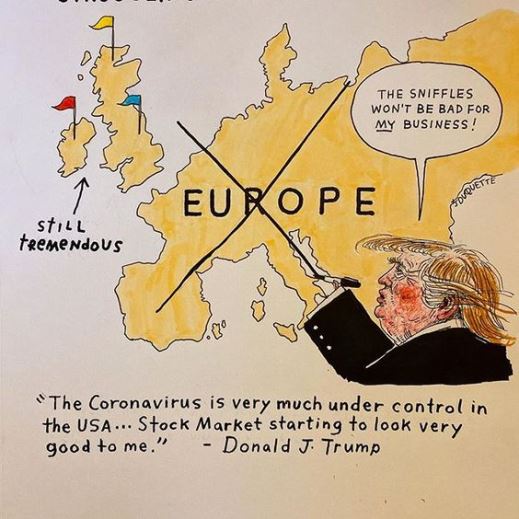 THE SNIFFLES
WON'T BE BAD FOR
MY BUSINESS!
DUQUETTE
EUROPE
STILL
TREMENDOUS
"The Coronavirus is very much under control in
the USA... Stock Market starting to look very
good to me." - Donald J. Trump